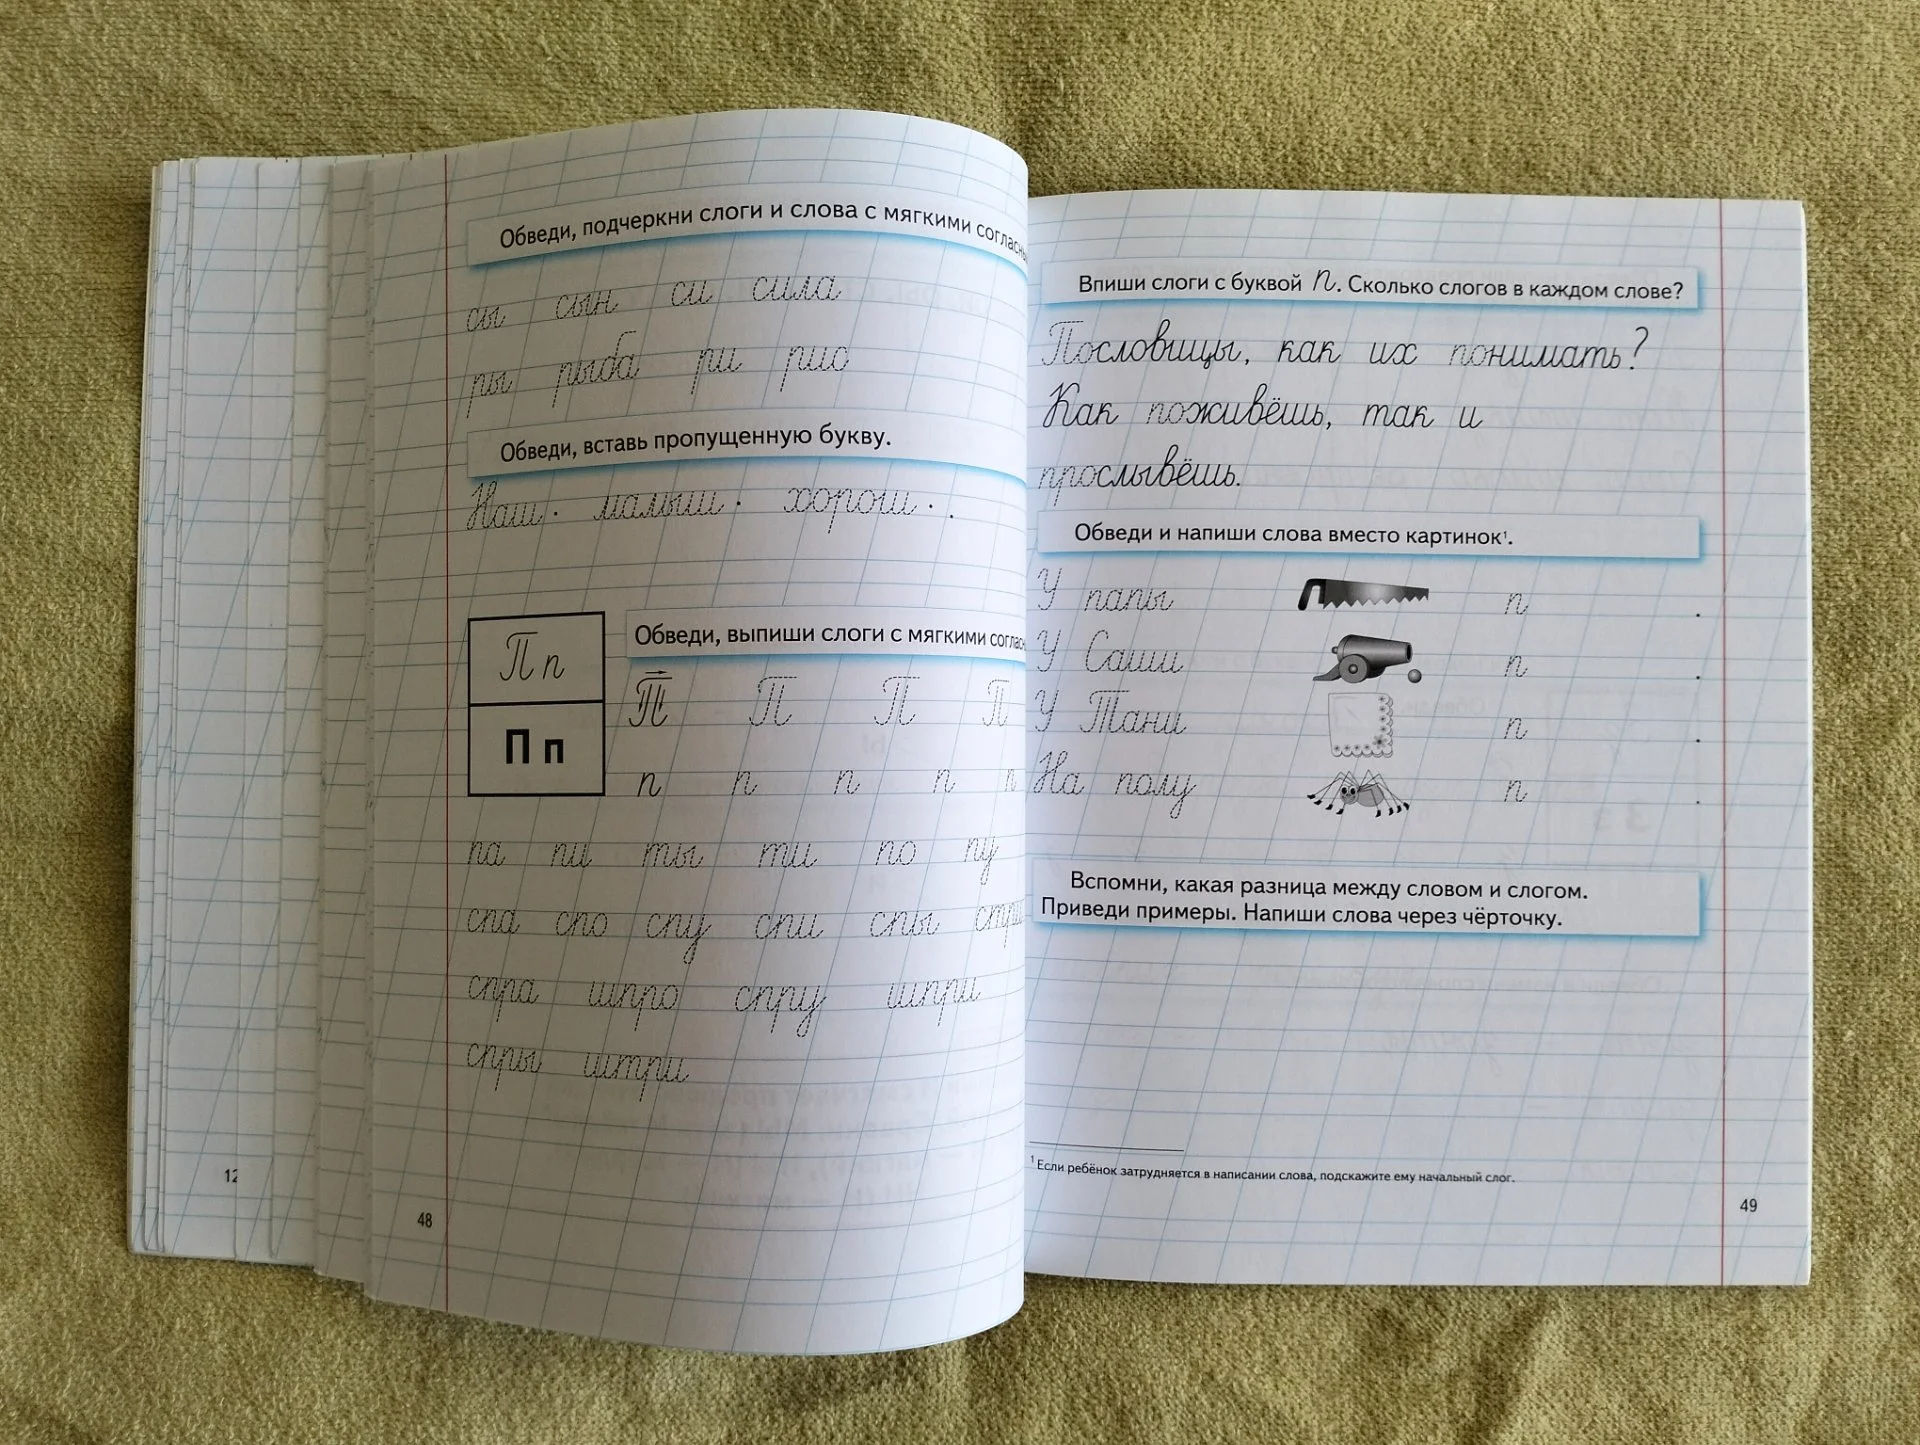 Обведи, подчеркни слоги и слова с мягкими согласны
сы сын си сила
ры рыба ри рис
Обведи, вставь пропущенную букву.
Наш . малыш . хорош . .
П п
П п
Обведи, выпиши слоги с мягкими согласн
П П П П
п п п п п
па пи ты ти по пу
спа спо спу спи спы стри
спра шпро спру шпри
спры штри
48
12
Впиши слоги с буквой п. Сколько слогов в каждом слове?
Пословицы, как их понимать?
Как поживёшь, так и
прослывёшь.
Обведи и напиши слова вместо картинок¹.
У папы п .
У Саши п .
У Тани п .
На полу п .
Вспомни, какая разница между словом и слогом.
Приведи примеры. Напиши слова через чёрточку.
¹ Если ребёнок затрудняется в написании слова, подскажите ему начальный слог.
49